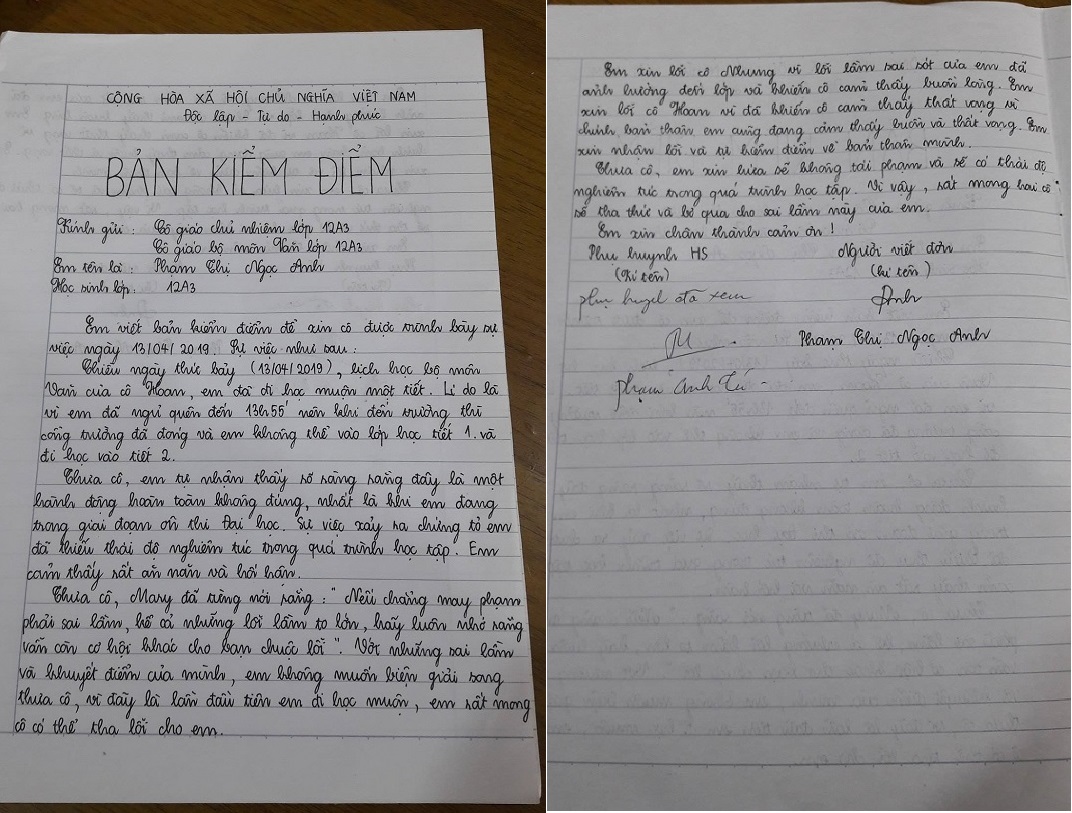 CỘNG HÒA XÃ HỘI CHỦ NGHĨA VIỆT NAM
Độc lập - Tự do - Hạnh phúc
BẢN KIỂM ĐIỂM
Kính gửi : Cô giáo chủ nhiệm lớp 12A3
Cô giáo bộ môn Văn lớp 12A3
Em tên là : Phạm Thị Ngọc Anh
Học sinh lớp : 12A3
Em viết bản kiểm điểm để xin cô được trình bày sự
việc ngày 13/04/2019. Sự việc như sau :
Chiều ngày thứ bảy (13/04/2019), lịch học bộ môn
Văn của cô Hoan, em đã đi học muộn một tiết. Lí do là
vì em đã ngủ quên đến 13h55' nên khi đến trường thì
cổng trường đã đóng và em không thể vào lớp học tiết 1. và
đi học vào tiết 2.
Thưa cô, em tự nhận thấy rõ ràng rằng đây là một
hành động hoàn toàn không đúng, nhất là khi em đang
trong giai đoạn ôn thi Đại học. Sự việc xảy ra chứng tỏ em
đã thiếu thái độ nghiêm túc trong quá trình học tập. Em
cảm thấy rất ăn năn và hối hận.
Thưa cô, Mary đã từng nói rằng : " Nếu chẳng may phạm
phải sai lầm, kể cả những lỗi lầm to lớn, hãy luôn nhớ rằng
vẫn còn cơ hội khác cho bạn chuộc lỗi ". Với những sai lầm
và khuyết điểm của mình, em không muốn biện giải song
thưa cô, vì đây là lần đầu tiên em đi học muộn, em rất mong
cô có thể tha lỗi cho em.
Em xin lỗi cô Nhung vì lỗi lầm sai sót của em đã
ảnh hưởng đến lớp và khiến cô cảm thấy buồn lòng. Em
xin lỗi cô Hoan vì đã khiến cô cảm thấy thất vọng vì
chính bản thân em cũng đang cảm thấy buồn và thất vọng. Em
xin nhận lỗi và tự kiểm điểm về bản thân mình.
Thưa cô, em xin hứa sẽ không tái phạm và sẽ có thái độ
nghiêm túc trong quá trình học tập. Vì vậy, rất mong hai cô
sẽ tha thức và bỏ qua cho sai lầm này của em.
Em xin chân thành cảm ơn !
Phụ huynh HS Người viết đơn
(Kí tên) (kí tên)
phụ huynh đã xem Anh
Phạm Thị Ngọc Anh
Phạm Anh Tú